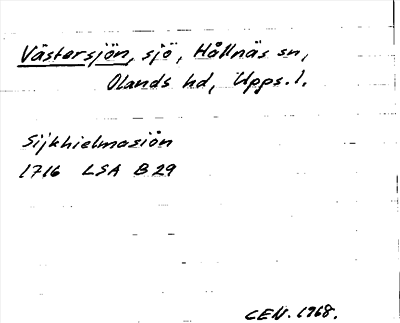 Västersjön, sjö, Hållnäs sn,
Olands hd, Upps. l.
Sijkhielmasiön
1716 LSA B 29
CEN. 1968.